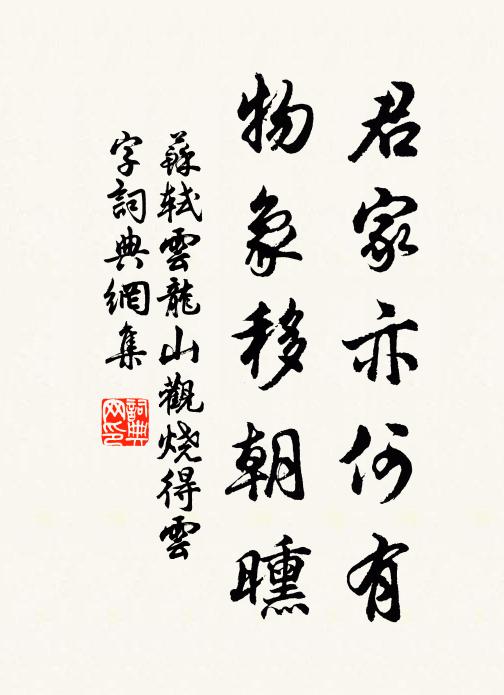 君家亦何有
物象移朝曛
蘇軾雲龍山觀烧得雲
字詞典網集
詞典
网印